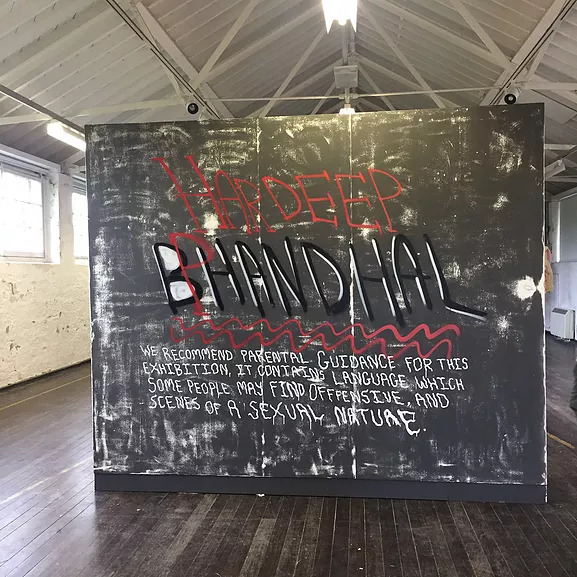 HARDEEP
BHANDHAL
WE RECOMMEND PARENTAL GUIDANCE FOR THIS
EXHIBITION, IT CONTAINS LANGUAGE WHICH
SOME PEOPLE MAY FIND OFFFENSIVE, AND
SCENES OF A SEXUAL NATURE.